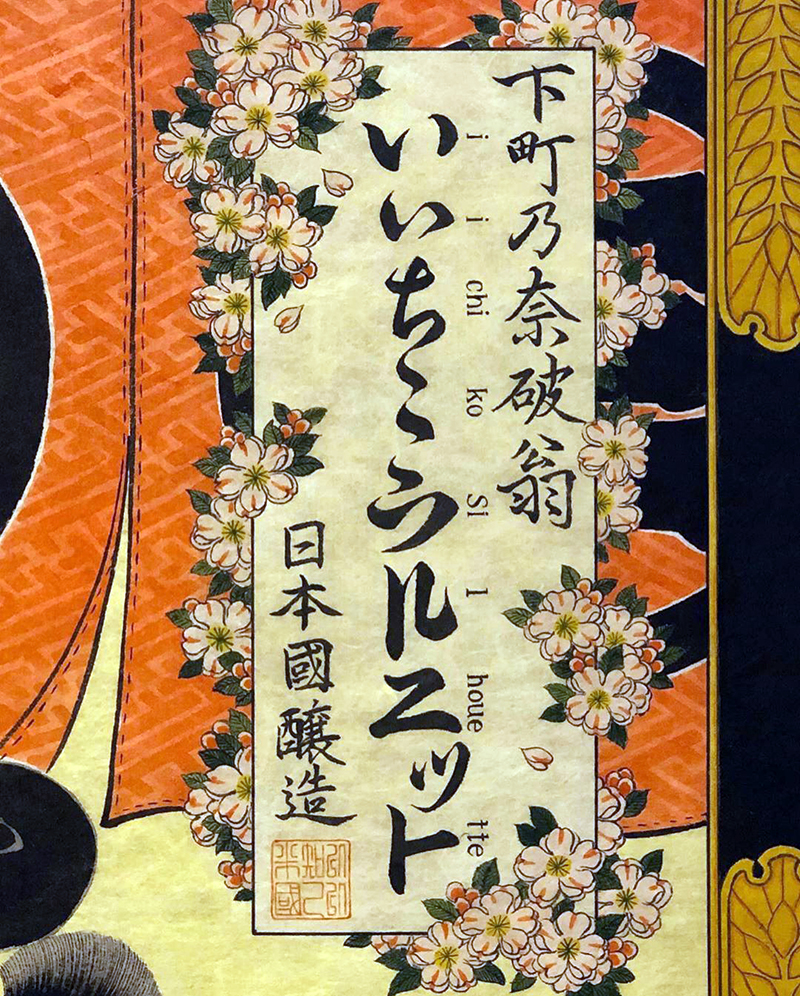 下町乃奈破翁
i i chi ko Si l houe tte
いいちこシルエット
日本國醸造